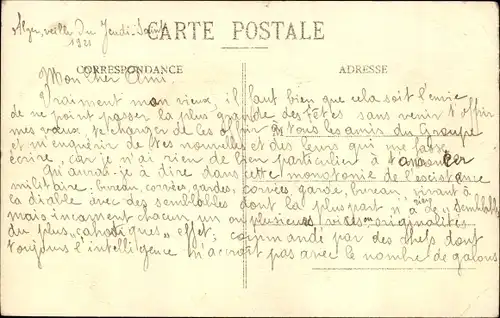 Alger, veille du Jeudi-Saint
1921
CARTE POSTALE
CORRESPONDANCE
ADRESSE
Mon cher Ami
Vraiment mon vieux, il faut bien que cela soit l'envie
de ne point passer la plus grande des fêtes sans venir t'offrir
mes vœux, te charger de les offrir à tous les amis du Groupe
et m'enquérir de tes nouvelles et des leurs qui me fasse
écrire, car je n'ai rien de bien particulier à t'annoncer
Qu'aurai-je à dire dans cette monotonie de l'existence
militaire: bureau, corvées, gardes, corvées garde, bureau, vivant à
la diable avec des semblables dont la plupart n'a rien de semblable
mais incarnent chacun un ou plusieurs vices ou originalités
du plus effet, commandé par des chefs dont
toujours l'intelligence n'accroît pas avec le nombre de galons